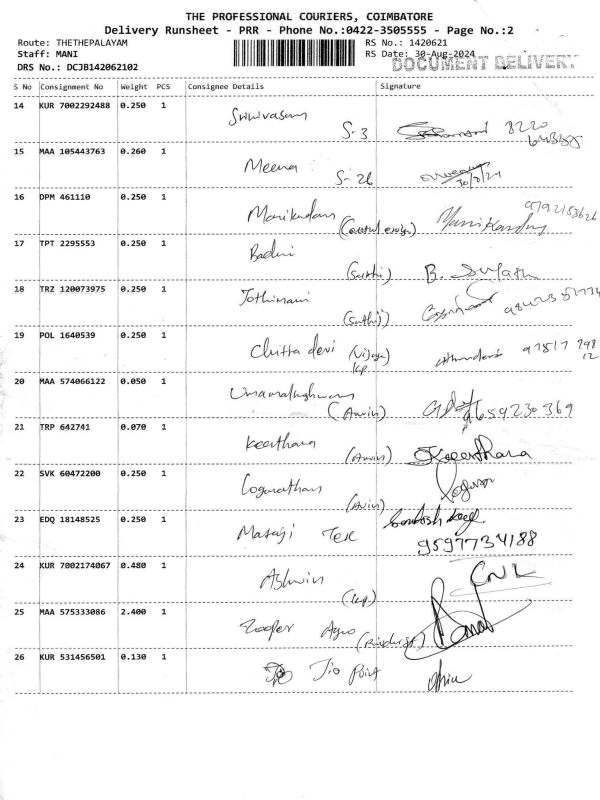 THE PROFESSIONAL COURIERS, COIMBATORE
Delivery Runsheet - PRR - Phone No.:0422-3505555 - Page No.:2
Route: THETHEPALAYAM RS No.: 1420621
Staff: MANI RS Date: 30-Aug-2024
DOCUMENT DELIVERY
DRS No.: DCJB142062102
S No Consignment No Weight PCS Consignee Details Signature
14 KUR 7002292488 0.250 1
Srinivasan
S-3 8220
15 MAA 105443763 0.260 1
Meena
S-26 30/8/24
16 DPM 461110 0.250 1
Manikandan Manikandan
17 TPT 2295553 0.250 1
Badri
(Sakthi) B.
18 TRZ 120073975 0.250 1
Jothimani
(Sakthi)
19 POL 1640539 0.250 1
Chitra devi (Vijaya 97517 298
KP) 12
20 MAA 574066122 0.050 1
Umamaheshwari
(Arvin) 9659230369
21 TRP 642741 0.070 1
Keerthana
(Arvin) Keerthana
22 SVK 60472200 0.250 1
Loganathan
(Arvin)
23 EDQ 18148525 0.250 1
Santosh
Tex 9597734188
24 KUR 7002174067 0.480 1
Ashwin
(kp)
25 MAA 575333086 2.400 1
Zooper Agro
26 KUR 531456501 0.130 1
Jio Point